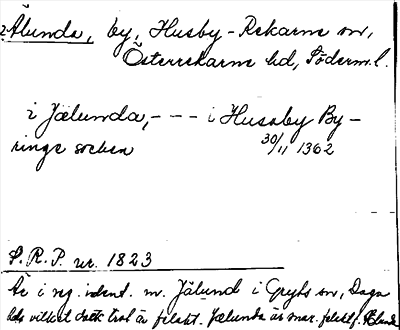 Ålunda, by, Husby-Rekarne sn,
Österrekarne hd, Söderm.l.
i Jælunda, - - - i Husaby By-
ringe sochen 30/11 1362
S.R.P. nr. 1823
Är i reg. ident. m. Jälund i Gryts sn, Daga
hds vilket dock trol. är felakt. Jælunda äs snar. felakt. f. Ælunda